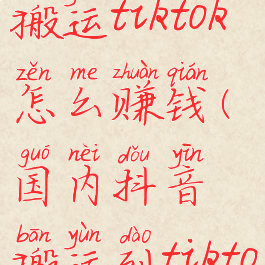 搬运tiktok
zěn me zhuàn qián
怎么赚钱(
guó nèi dǒu yīn
国内抖音
bān yùn dào
搬运到tikto